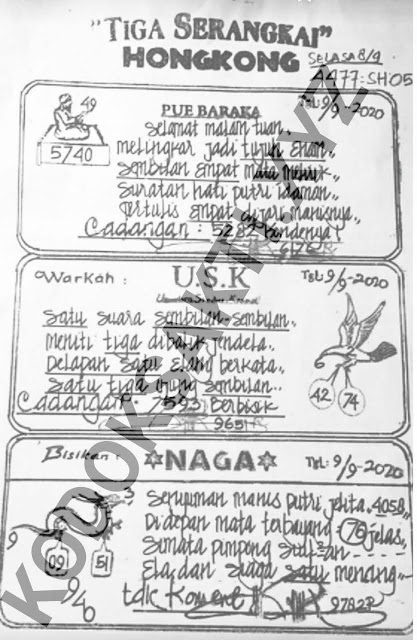 "TIGA SERANGKAI"
HONGKONG
SELASA 8/9
4477: SH05
49
5740
PUE BARAKA
TGL: 9/9-2020
Selamat malam tuan..
Melingkar jadi tujuh enam..
Sembilan empat mata
Suratan hati putri idaman..
Tertulis empat di jari manisnya..
Cadangan: 5282
6176
Warkah:
U.S.K
TGL: 9/9-2020
Satu suara sembilan-sembilan..
Meniti tiga dibalik jendela..
Delapan satu elang berkata..
Satu tiga ujung sembilan..
Cadangan: 7593 Berbisik
9651
42
74
Bisikan:
NAGA
TGL: 9/9-2020
Senyuman manis putri jelita 4058
Didepan mata terbayang 76 jelas..
Ela dan siaga satu
tdk Koment
9782P
9
09
51
9/46
KODOKSAKTI.XYZ